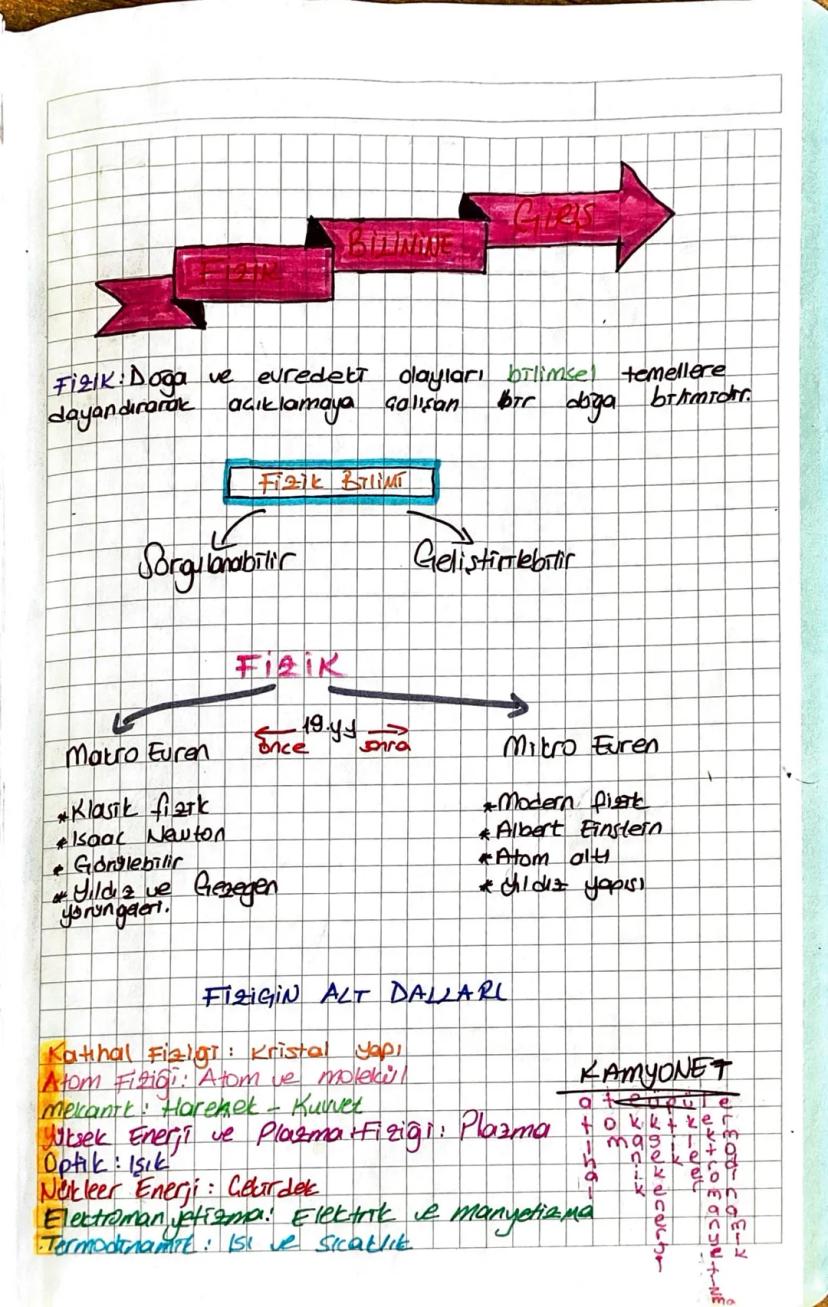 FİZİK BİLİMİNE GİRİŞ
FİZİK: Doğa ve evredeki olayları bilimsel temellere
dayandırarak açıklamaya çalışan bir doğa bilimidir.
Fizik Bilimi
Sorgulanabilir Geliştirilebilir
FİZİK
19.yy
önce sonra
Makro Evren Mikro Evren
*Klasik fizik
*Isaac Newton
*Görülebilir
*Yıldız ve Gezegen
yörüngeleri.
*Modern fizik
*Albert Einstein
*Atom altı
*Yıldız yapısı
FİZİĞİN ALT DALLARI
Katıhal Fiziği: Kristal yapı
Atom Fiziği: Atom ve molekül
Mekanik: Hareket - Kuvvet
Yüksek Enerji ve Plazma Fiziği: Plazma
Optik: Işık
Nükleer Enerji: Çekirdek
Elektromanyetizma: Elektrik ve manyetizma
Termodinamik: Isı ve Sıcaklık
KAMYONET